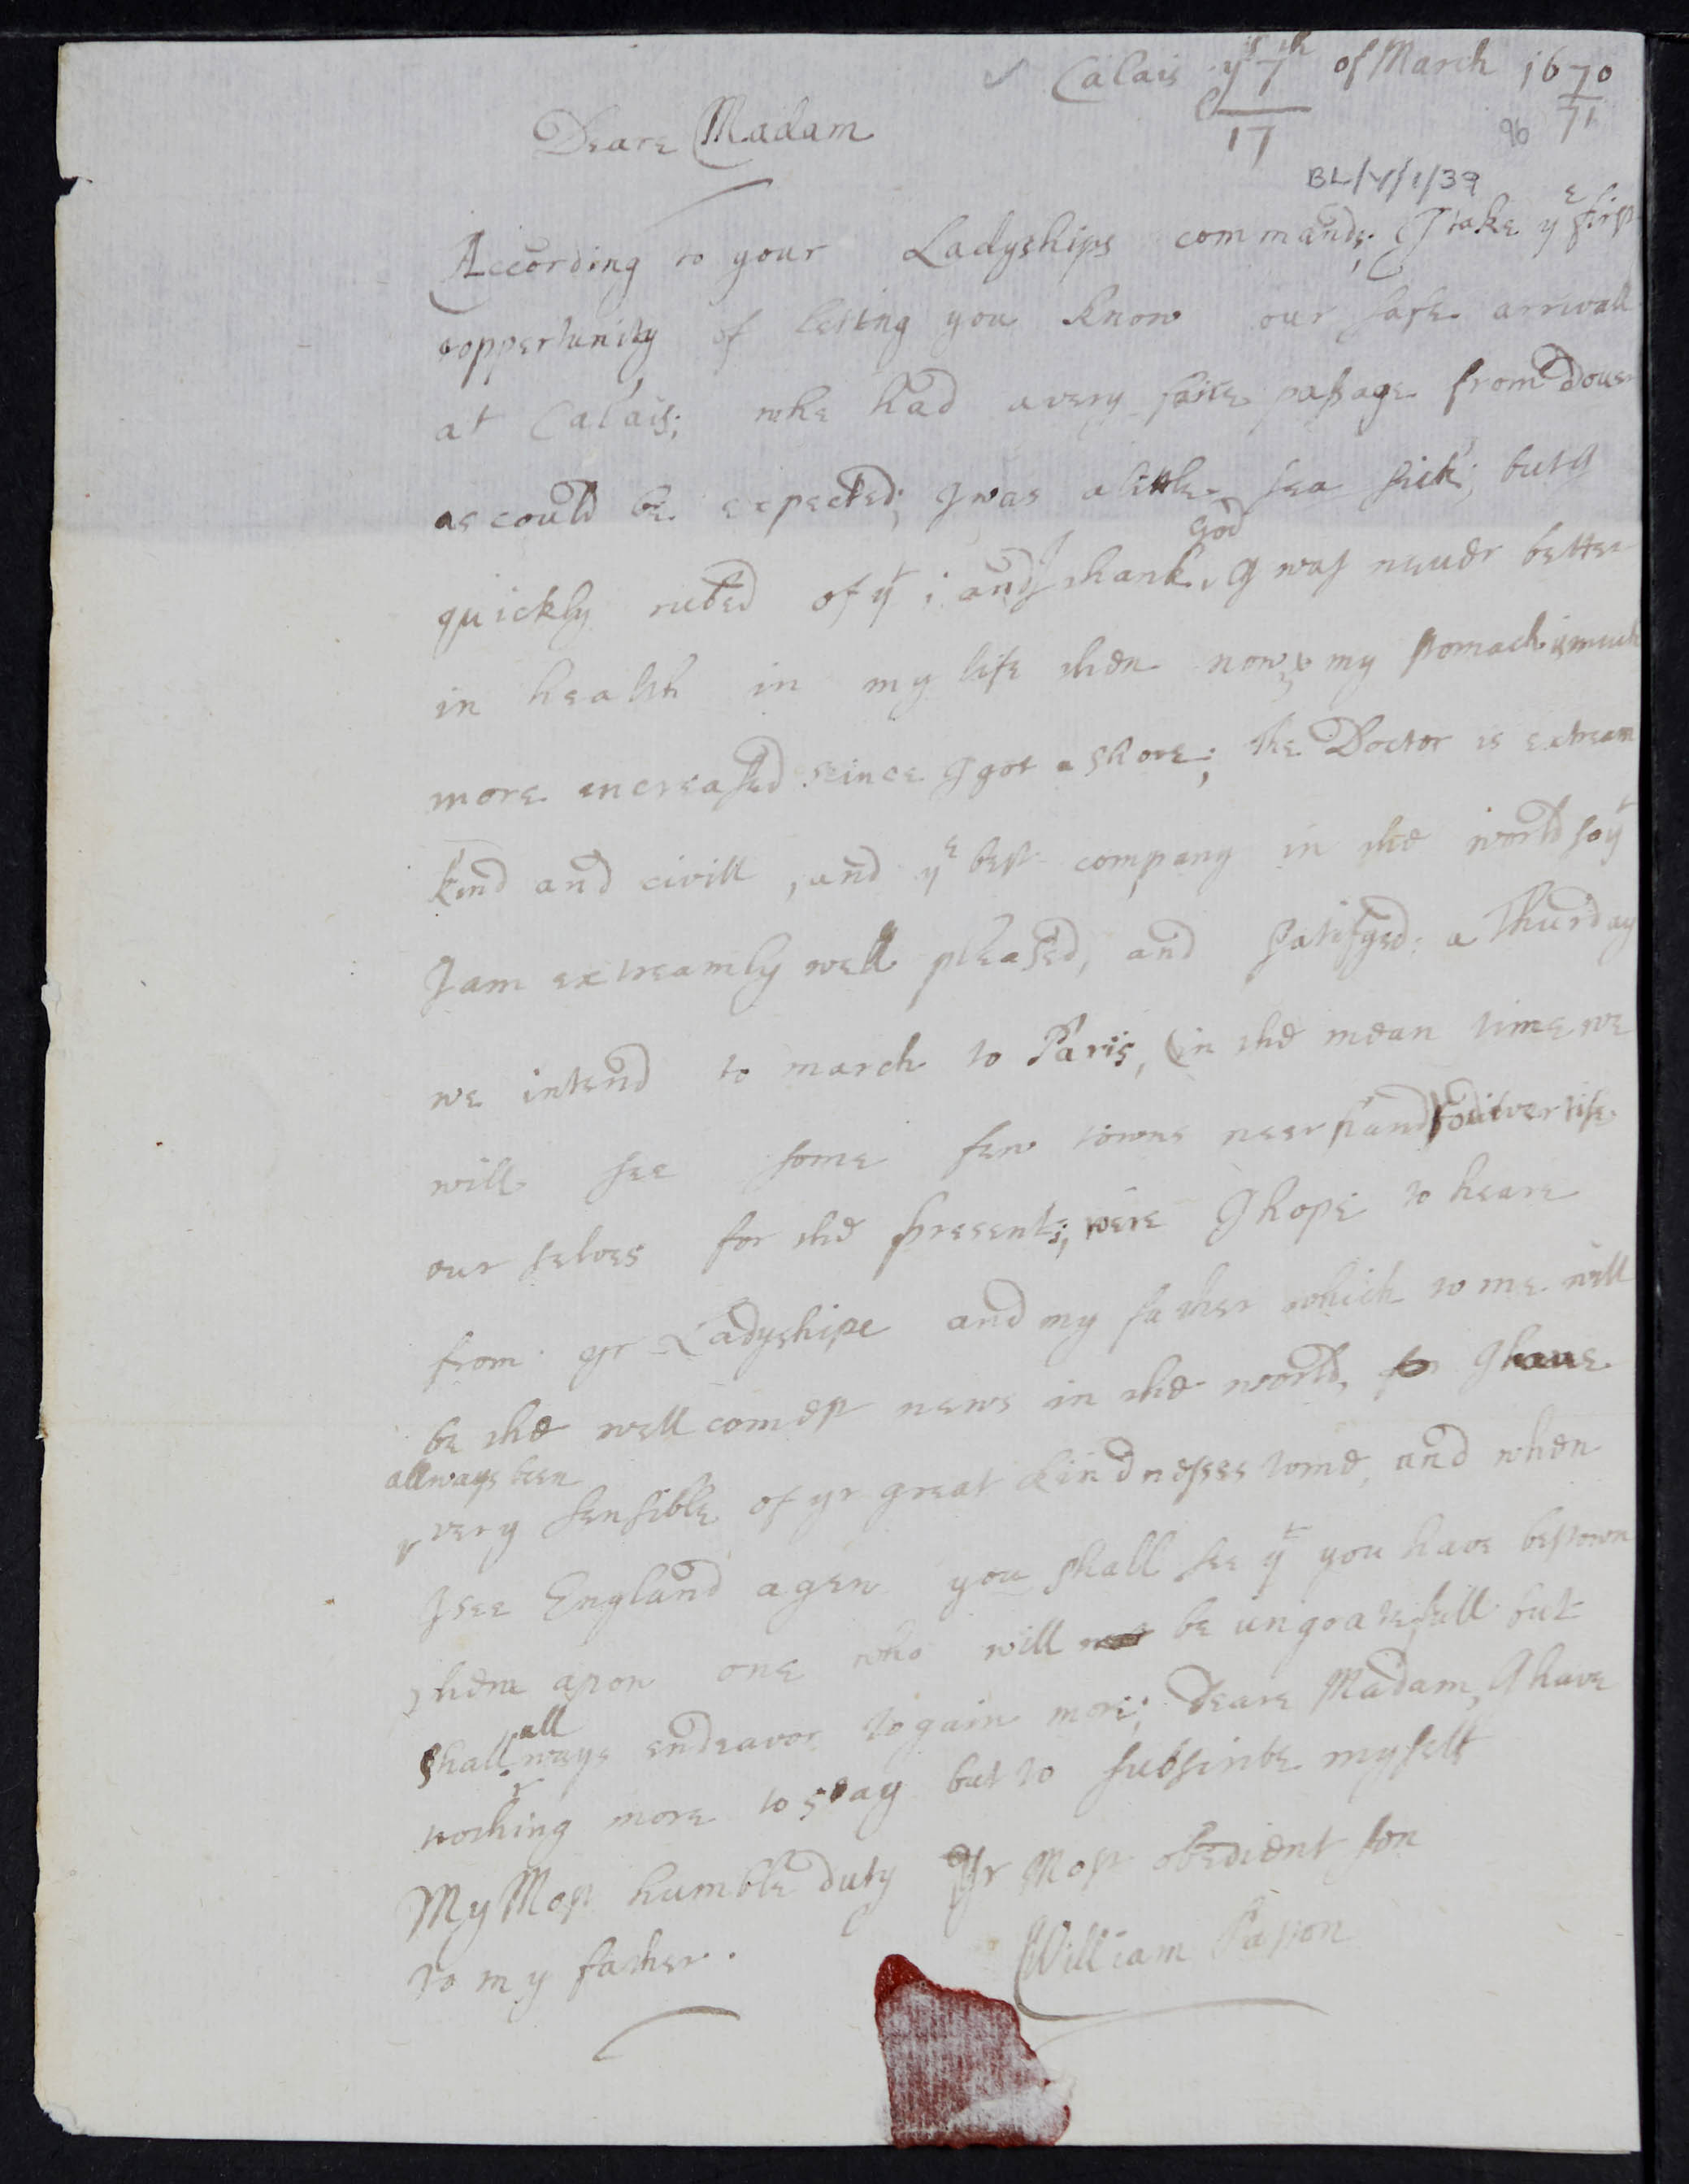 Calais ys 7th of March 1670
17 71
96
Deare Madam
BL/Y/1/39
According to your Ladyships commands; I take ye first
oppertunity of letting you know our safe arrivall
at Calais; whe had a very faire passage from dover
as could be expected; I was a little sea sick; but I
God
quickly rubed of yt; and I thank, I was never better
in health in my life then now; my stomach is much
more encreased seince I got a shore; the Doctor is extream
kind and civill, and ye best company in the world so yt
I am extreamly well pleased, and satisfyed: a Thursday
we intend to march to Paris, (in the mean time we
will see some few towns neer hand to divertise
our selves for the present; were I hope to heare
from yr Ladyshipe and my father which to me will
be the wellcomest news in the world, for I have
allways been
very sensible of yr great kindnesses to me, and when
I see England agen you shall see yt you have bestown
them apon one who will not be ungoatefull but
all
shall ways endeavor to gain more; Deare Madam, I have
nothing more to say but to subscribe myself
My Most humble duty Yr Most obedient son
to my father. William Paston